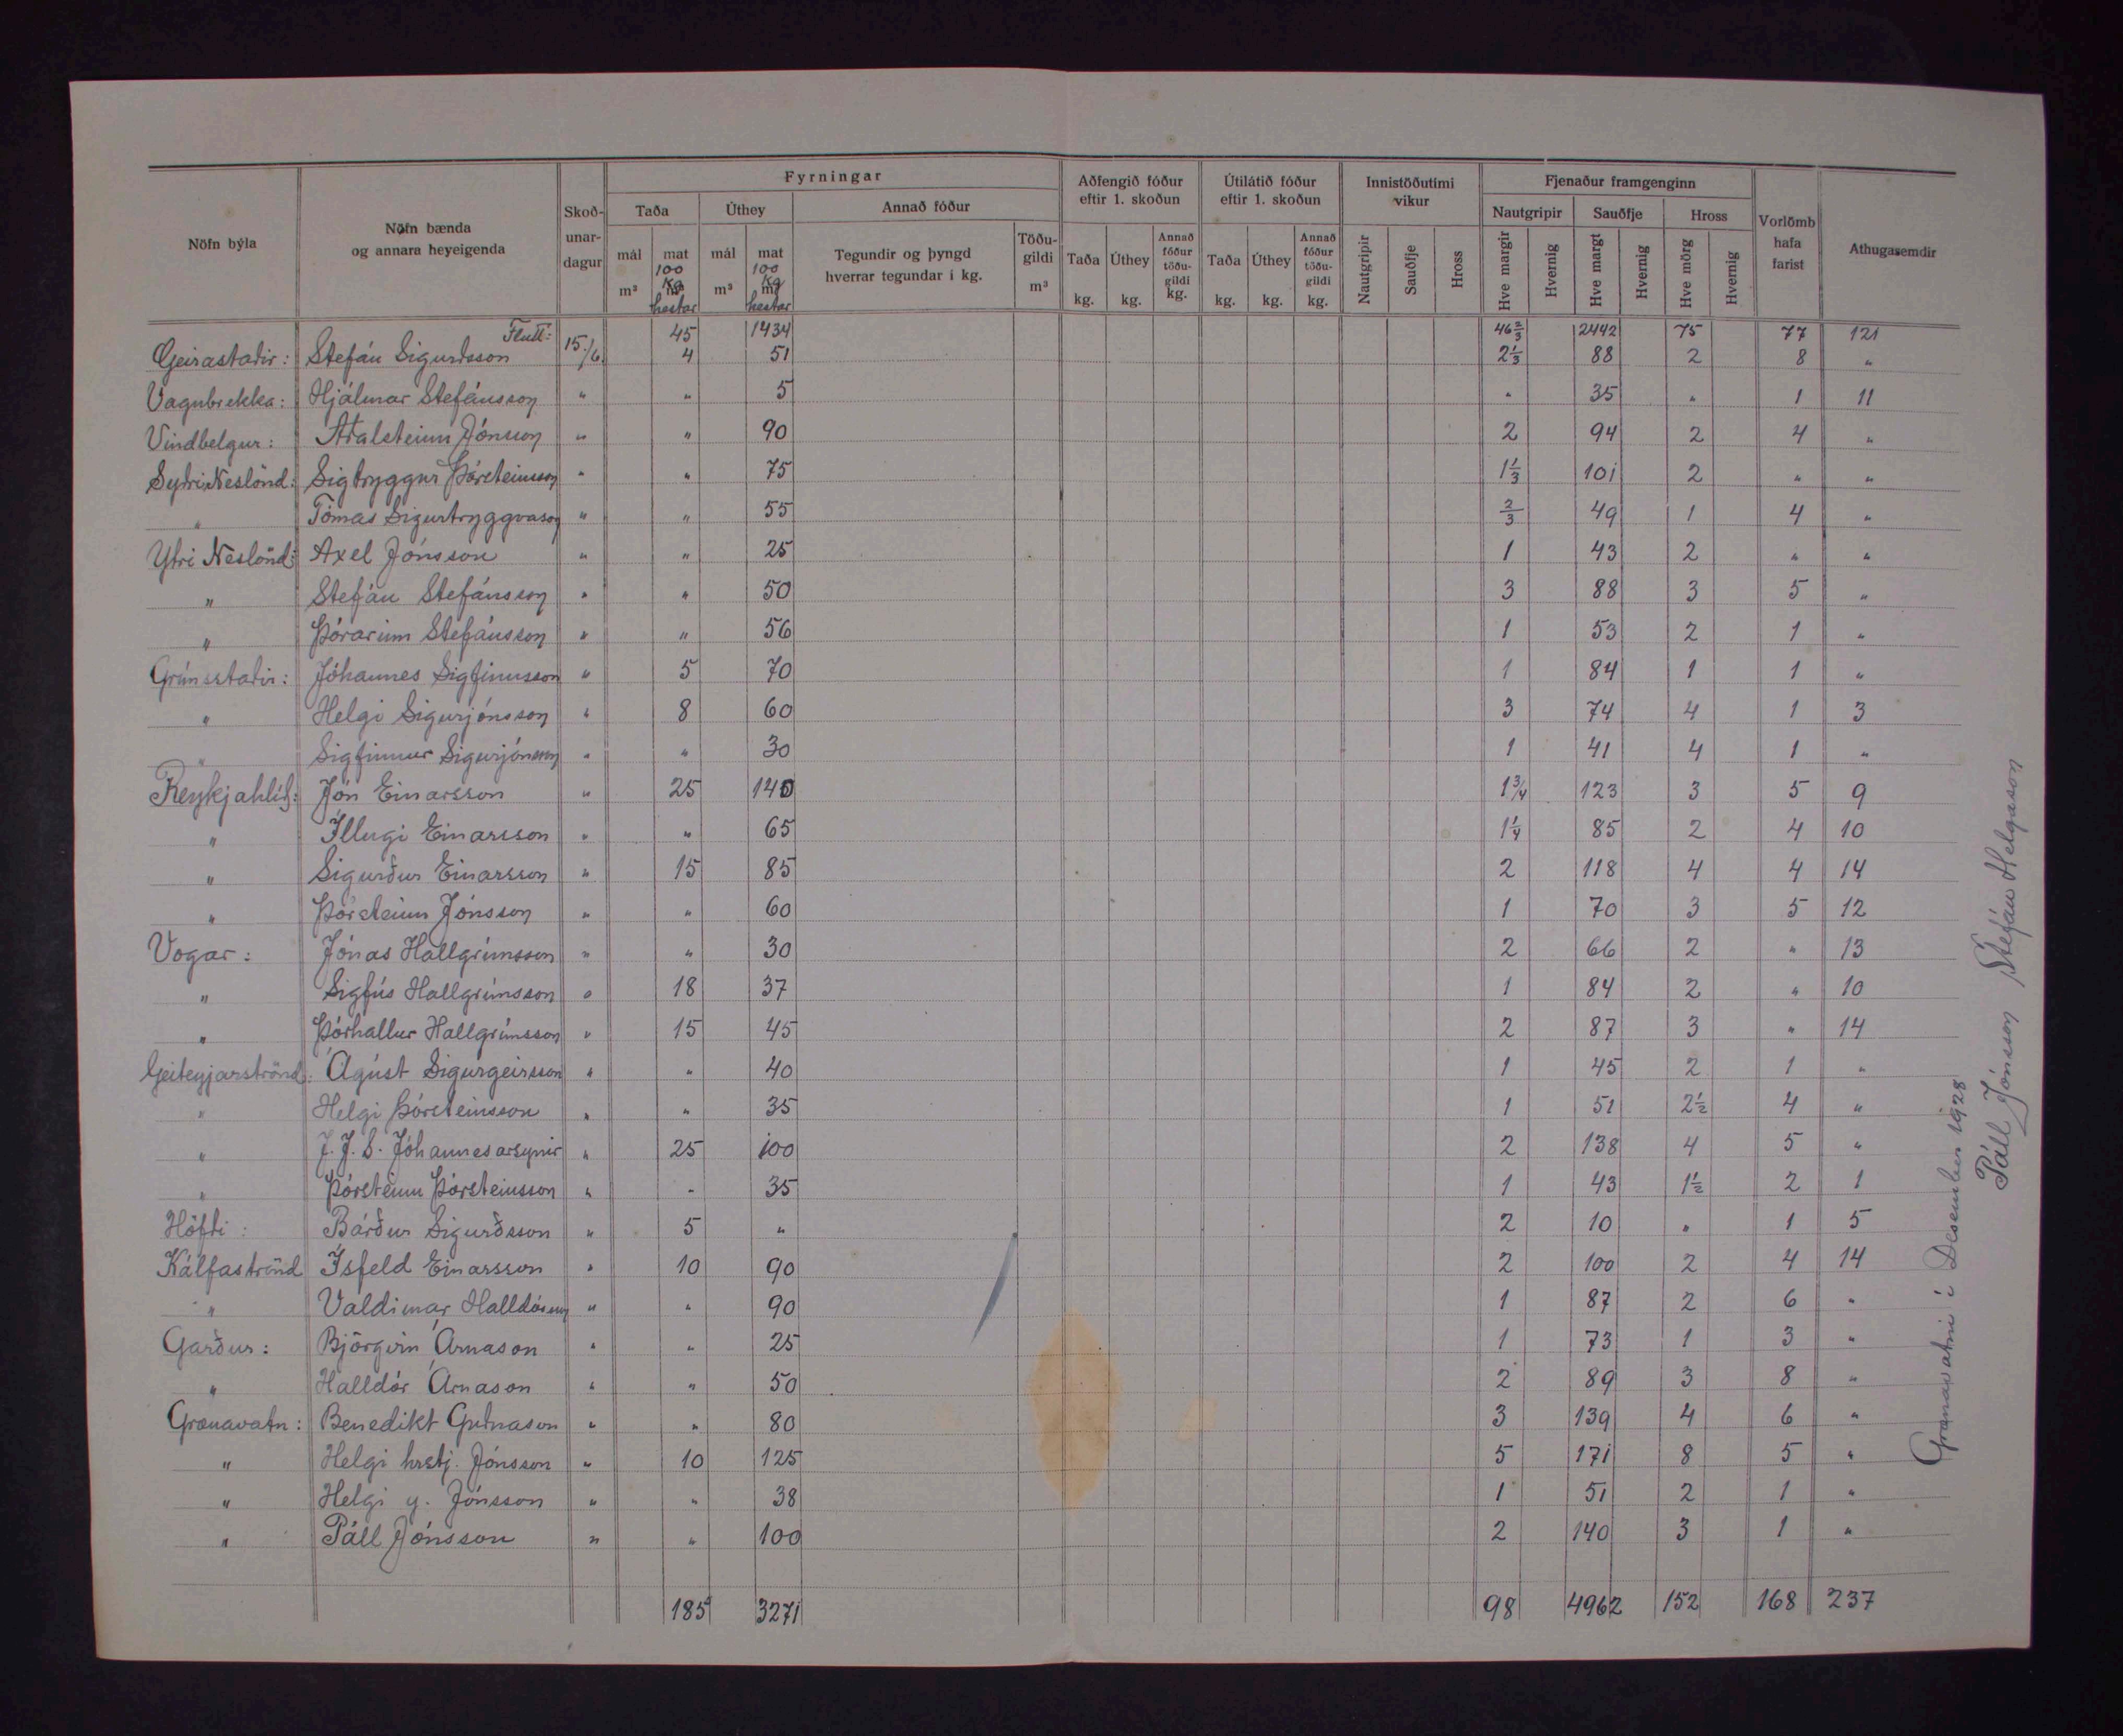 Nöfn býla | Nöfn bænda og annara heyeigenda | Skoð-unar-dagur | Fyrningar | Aðfengið fóður eftir 1. skoðun | Útilátið fóður eftir 1. skoðun | Innistöðutími vikur | Fjenaður framgenginn | Vorlömb hafa farist | Athugasemdir
Taða | Úthey | Annað fóður | Nautgripir | Sauðfje | Hross
mál m³ | mat 100 Kg m³ hestar | mál m³ | mat 100 Kg m³ hestar | Tegundir og þyngd hverrar tegundar í kg. | Töðu-gildi m³ | Taða kg. | Úthey kg. | Annað fóður töðu-gildi kg. | Taða kg. | Úthey kg. | Annað fóður töðu-gildi kg. | Nautgripir | Sauðfje | Hross | Hve margir | Hvernig | Hve margt | Hvernig | Hve mörg | Hvernig
Flutt: 45 1434 46 2/3 2442 75 77 121
Geirastaðir: Stefán Sigurðsson 15./6. 4 51 2 1/3 88 2 8 "
Vagnbrekka: Hjálmar Stefánsson " " 5 " 35 " 1 11
Vindbelgur: Aðalsteinn Jónsson " " 90 2 94 2 4 "
Syðri Neslönd: Sigtryggur Þórsteinsson " " 75 1 1/3 101 2 " "
" Tómas Sigurtryggvason " " 55 2/3 49 1 4 "
Ytri Neslönd: Axel Jónsson " " 25 1 43 2 " "
" Stefán Stefánsson " " 50 3 88 3 5 "
" Þórarinn Stefánsson " " 56 1 53 2 1 "
Grímsstaðir: Jóhannes Sigfinnsson " 5 70 1 84 1 1 "
" Helgi Sigurjónsson " 8 60 3 74 4 1 3
" Sigfinnur Sigurjónsson " " 30 1 41 4 1 "
Reykjahlíð: Jón Einarsson " 25 140 1 3/4 123 3 5 9
" Illugi Einarsson " " 65 1 1/4 85 2 4 10
" Sigurður Einarsson " 15 85 2 118 4 4 14
" Þórsteinn Jónsson " " 60 1 70 3 5 12
Vogar: Jónas Hallgrímsson " " 30 2 66 2 " 13
" Sigfús Hallgrímsson " 18 37 1 84 2 " 10
" Þórhallur Hallgrímsson " 15 45 2 87 3 " 14
Geiteyjarströnd: Ágúst Sigurgeirsson " " 40 1 45 2 1 "
" Helgi Þórsteinsson " " 35 1 51 2 1/2 4 "
" J. J. S. Jóhannesarsynir " 25 100 2 138 4 5 "
" Þórsteinn Þórsteinsson " " 35 1 43 1 1/2 2 1
Höfði: Bárður Sigurðsson " 5 " 2 10 " 1 5
Kálfaströnd Ísfeld Einarsson " 10 90 2 100 2 4 14
" Valdimar Halldórsson " " 90 1 87 2 6 "
Garður: Björgvin Árnason " " 25 1 73 1 3 "
" Halldór Árnason " " 50 2 89 3 8 "
Grænavatn: Benedikt Guðnason " " 80 3 139 4 6 "
" Helgi hrstj. Jónsson " 10 125 5 171 8 5 "
" Helgi y. Jónsson " " 38 1 51 2 1 "
" Páll Jónsson " " 100 2 140 3 1 "
185 3271 98 4962 152 168 237
Grænavatni í Desember 1928
Páll Jónsson Stefán Helgason